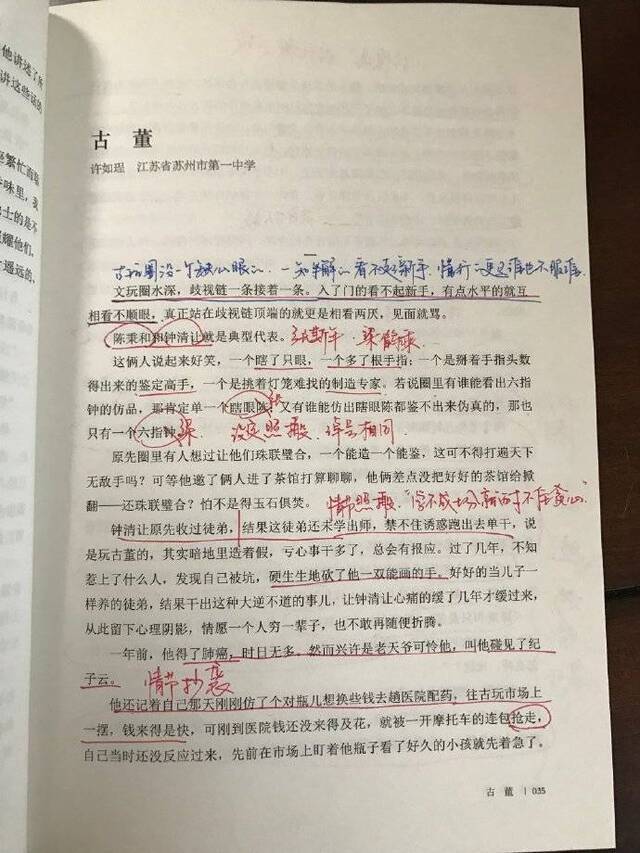 他讲述了所
讲这些话的
古 董
许如珵 江苏省苏州市第一中学
一
文玩圈水深，歧视链一条接着一条。入了门的看不起新手，有点水平的就互
相看不顺眼，真正站在歧视链顶端的就更是相看两厌，见面就骂。
陈秉和和钟清让就是典型代表。
这俩人说起来好笑，一个瞎了只眼，一个多了根手指；一个是掰着手指头数
得出来的鉴定高手，一个是挑着灯笼难找的制造专家。若说圈里有谁能看出六指
钟的仿品，那肯定单一个瞎眼陈，又有谁能仿出瞎眼陈都鉴不出来伪真的，那也
只有一个六指钟。 梁 设定照搬 绰号相同
原先圈里有人想过让他们珠联璧合，一个能造一个能鉴，这可不得打遍天下
无敌手吗？可等他邀了俩人进了茶馆打算聊聊，他俩差点没把好好的茶馆给掀
翻——还珠联璧合？怕不是得玉石俱焚。 情节照搬
钟清让原先收过徒弟，结果这徒弟还未学出师，禁不住诱惑跑出去单干，说
是玩古董的，其实暗地里造着假，亏心事干多了，总会有报应。过了几年，不知
惹上了什么人，发现自己被坑，硬生生地砍了他一双能画的手。好好的当儿子一
样养的徒弟，结果干出这种大逆不道的事儿，让钟清让心痛的缓了几年才缓过来，
从此留下心理阴影，情愿一个人穷一辈子，也不敢再随便折腾。
一年前，他得了肺癌，时日无多。然而兴许是老天爷可怜他，叫他碰见了纪
子云。 情节抄袭
他还记着自己那天刚刚仿了个对瓶儿想换些钱去趟医院配药，往古玩市场上
一摆，钱来得是快，可刚到医院钱还没来得及花，就被一开摩托车的连包抢走，
自己当时还没反应过来，先前在市场上盯着他瓶子看了好久的小孩就先着急了。
古 董 | 035